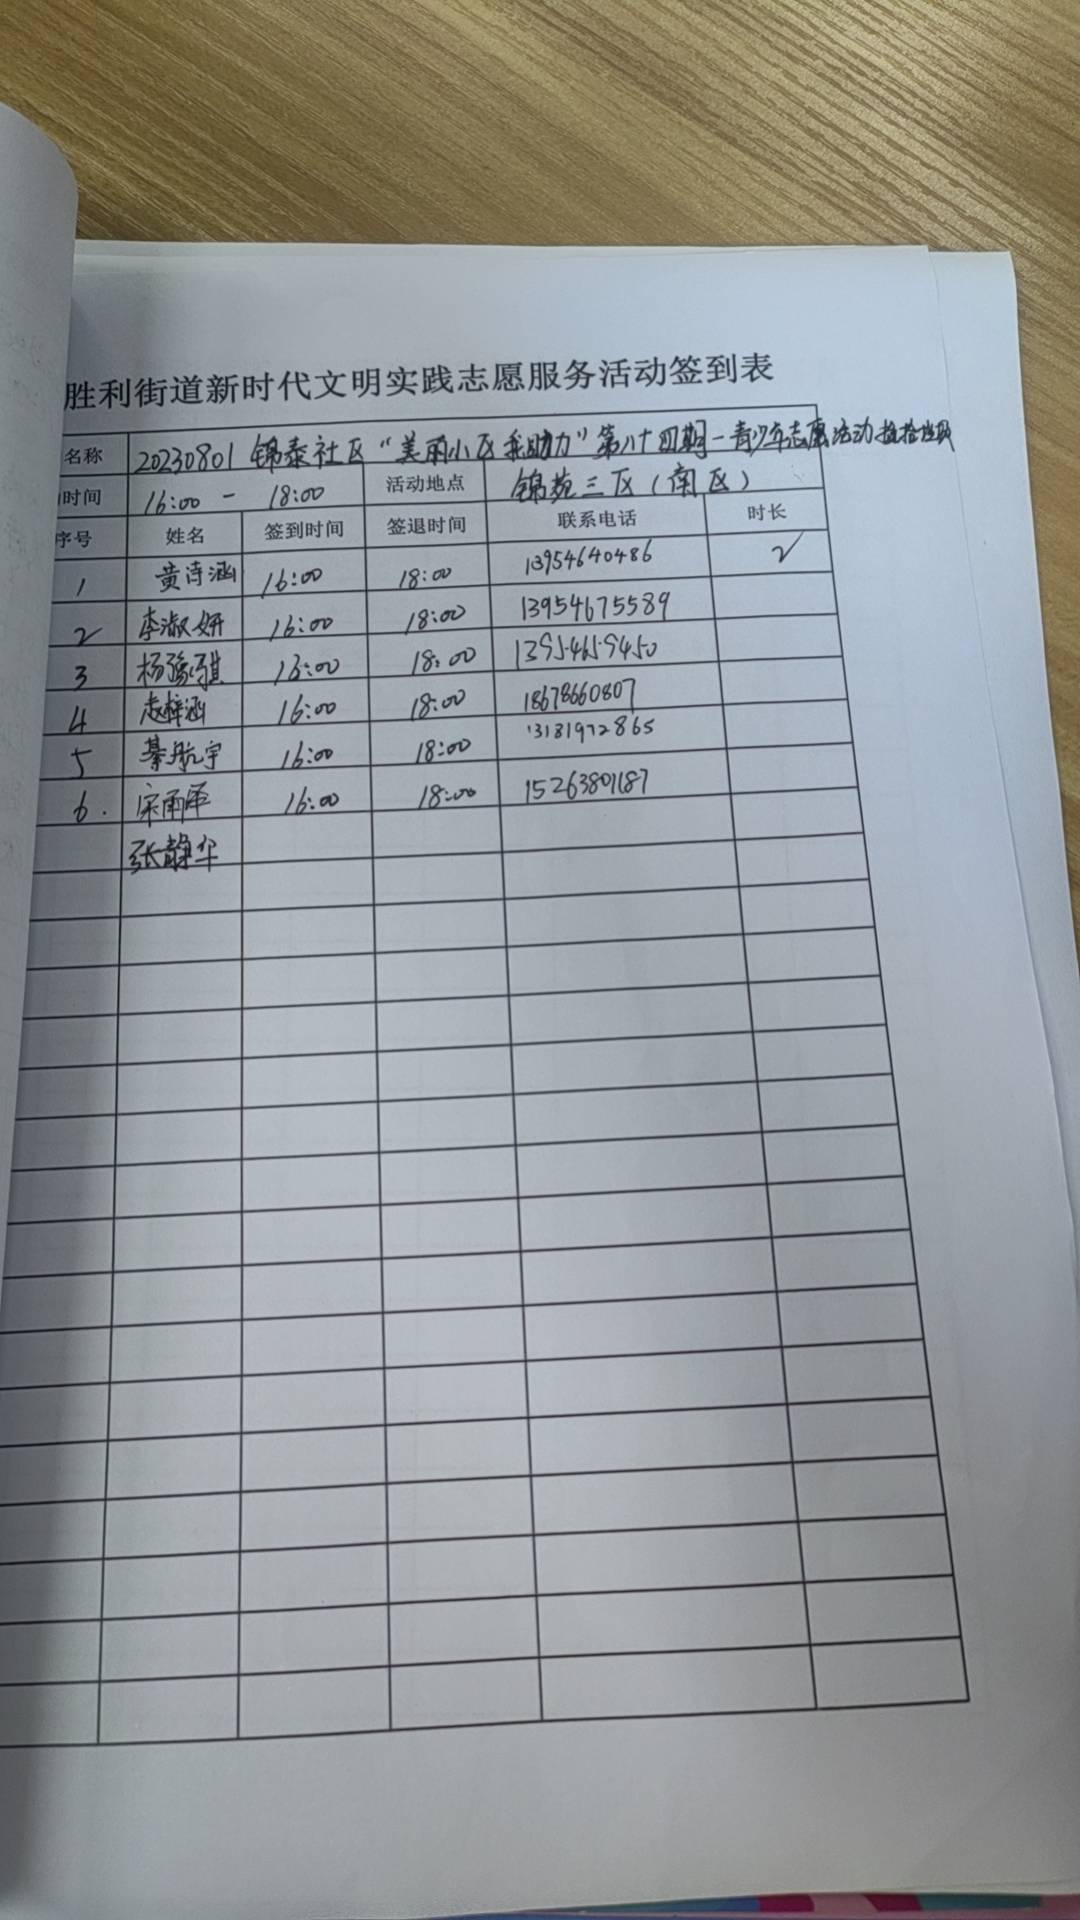 胜利街道新时代文明实践志愿服务活动签到表
名称 20230801 锦泰社区“美丽小区我助力”第八十四期—青少年志愿活动捡拾垃圾
时间 16:00 - 18:00 活动地点 锦苑三区(南区)
序号 姓名 签到时间 签退时间 联系电话 时长
1 黄诗涵 16:00 18:00 13954640486 2
2 李淑妍 16:00 18:00 13954675589
3 杨豫琪 16:00 18:00 13954659450
4 梓涵 16:00 18:00 18678660807
5 綦航宇 16:00 18:00 13181972865
6. 宋雨泽 16:00 18:00 15263801187
张静华